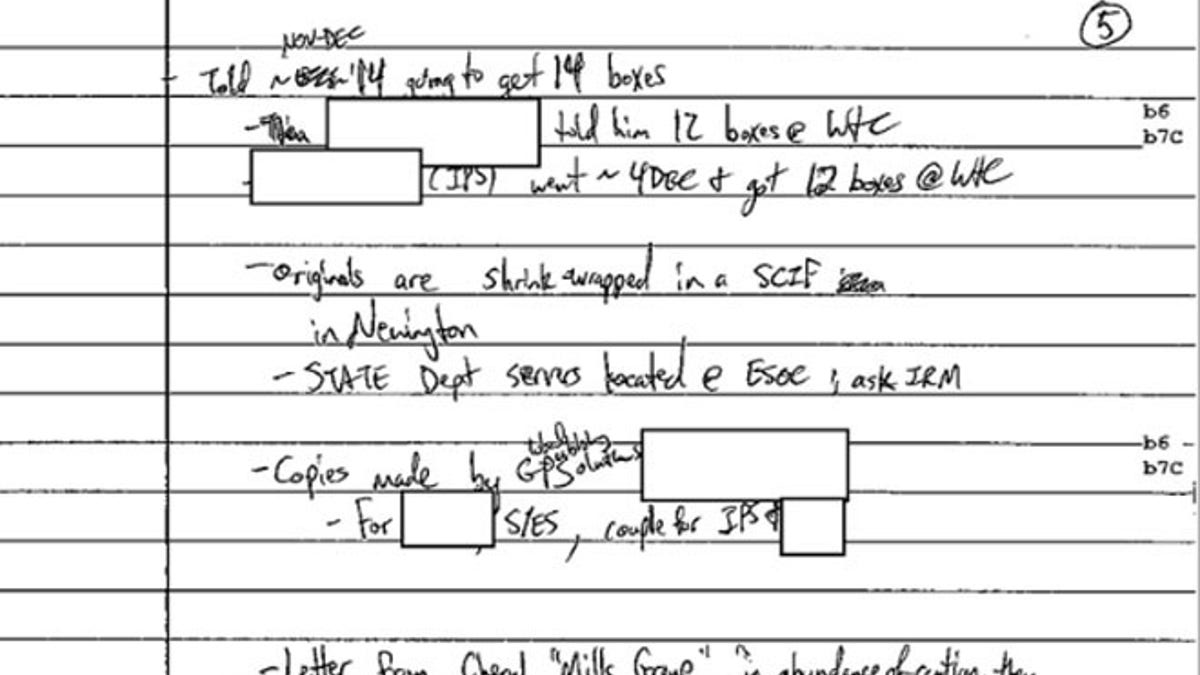 5
NOV-DEC
- Told ~ '14 going to get 14 boxes
- told him 12 boxes @ W+C b6
b7C
- (IPS) went ~ 4DEC & got 12 boxes @ W+C
- Originals are shrink-wrapped in a SCIF
in Newington
- STATE Dept servers located @ ESOC ; ask IRM
b6
- Copies made by GP Solutions b7C
- For S/ES, couple for IPS &
- Letter from Cheryl "Mills Group" in abundance of caution they